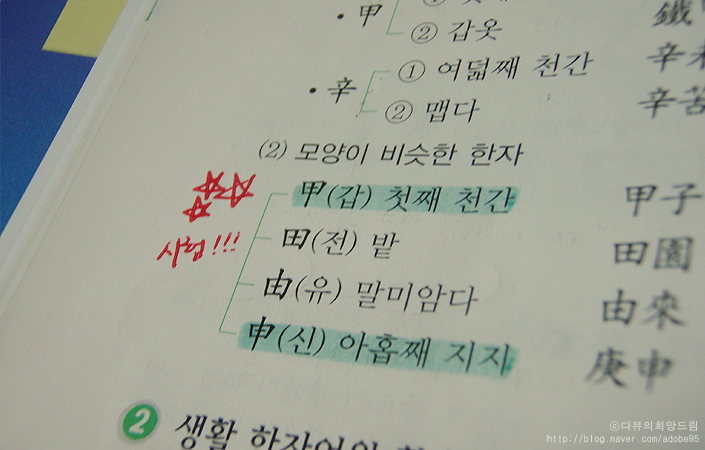 • 甲
② 갑옷
鐵甲
• 辛
① 여덟째 천간
辛未
② 맵다
辛苦
(2) 모양이 비슷한 한자
甲(갑) 첫째 천간
甲子
田(전) 밭
田園
!!! 시험
由(유) 말미암다
由來
申(신) 아홉째 지지
庚申
2 생활 한자어의
ⓒ다뷰의희망드림
http://blog.naver.com/adobe95